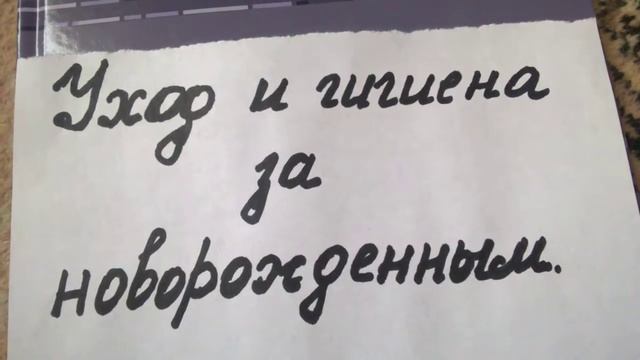 Уход и гигиена
за
новорожденным.